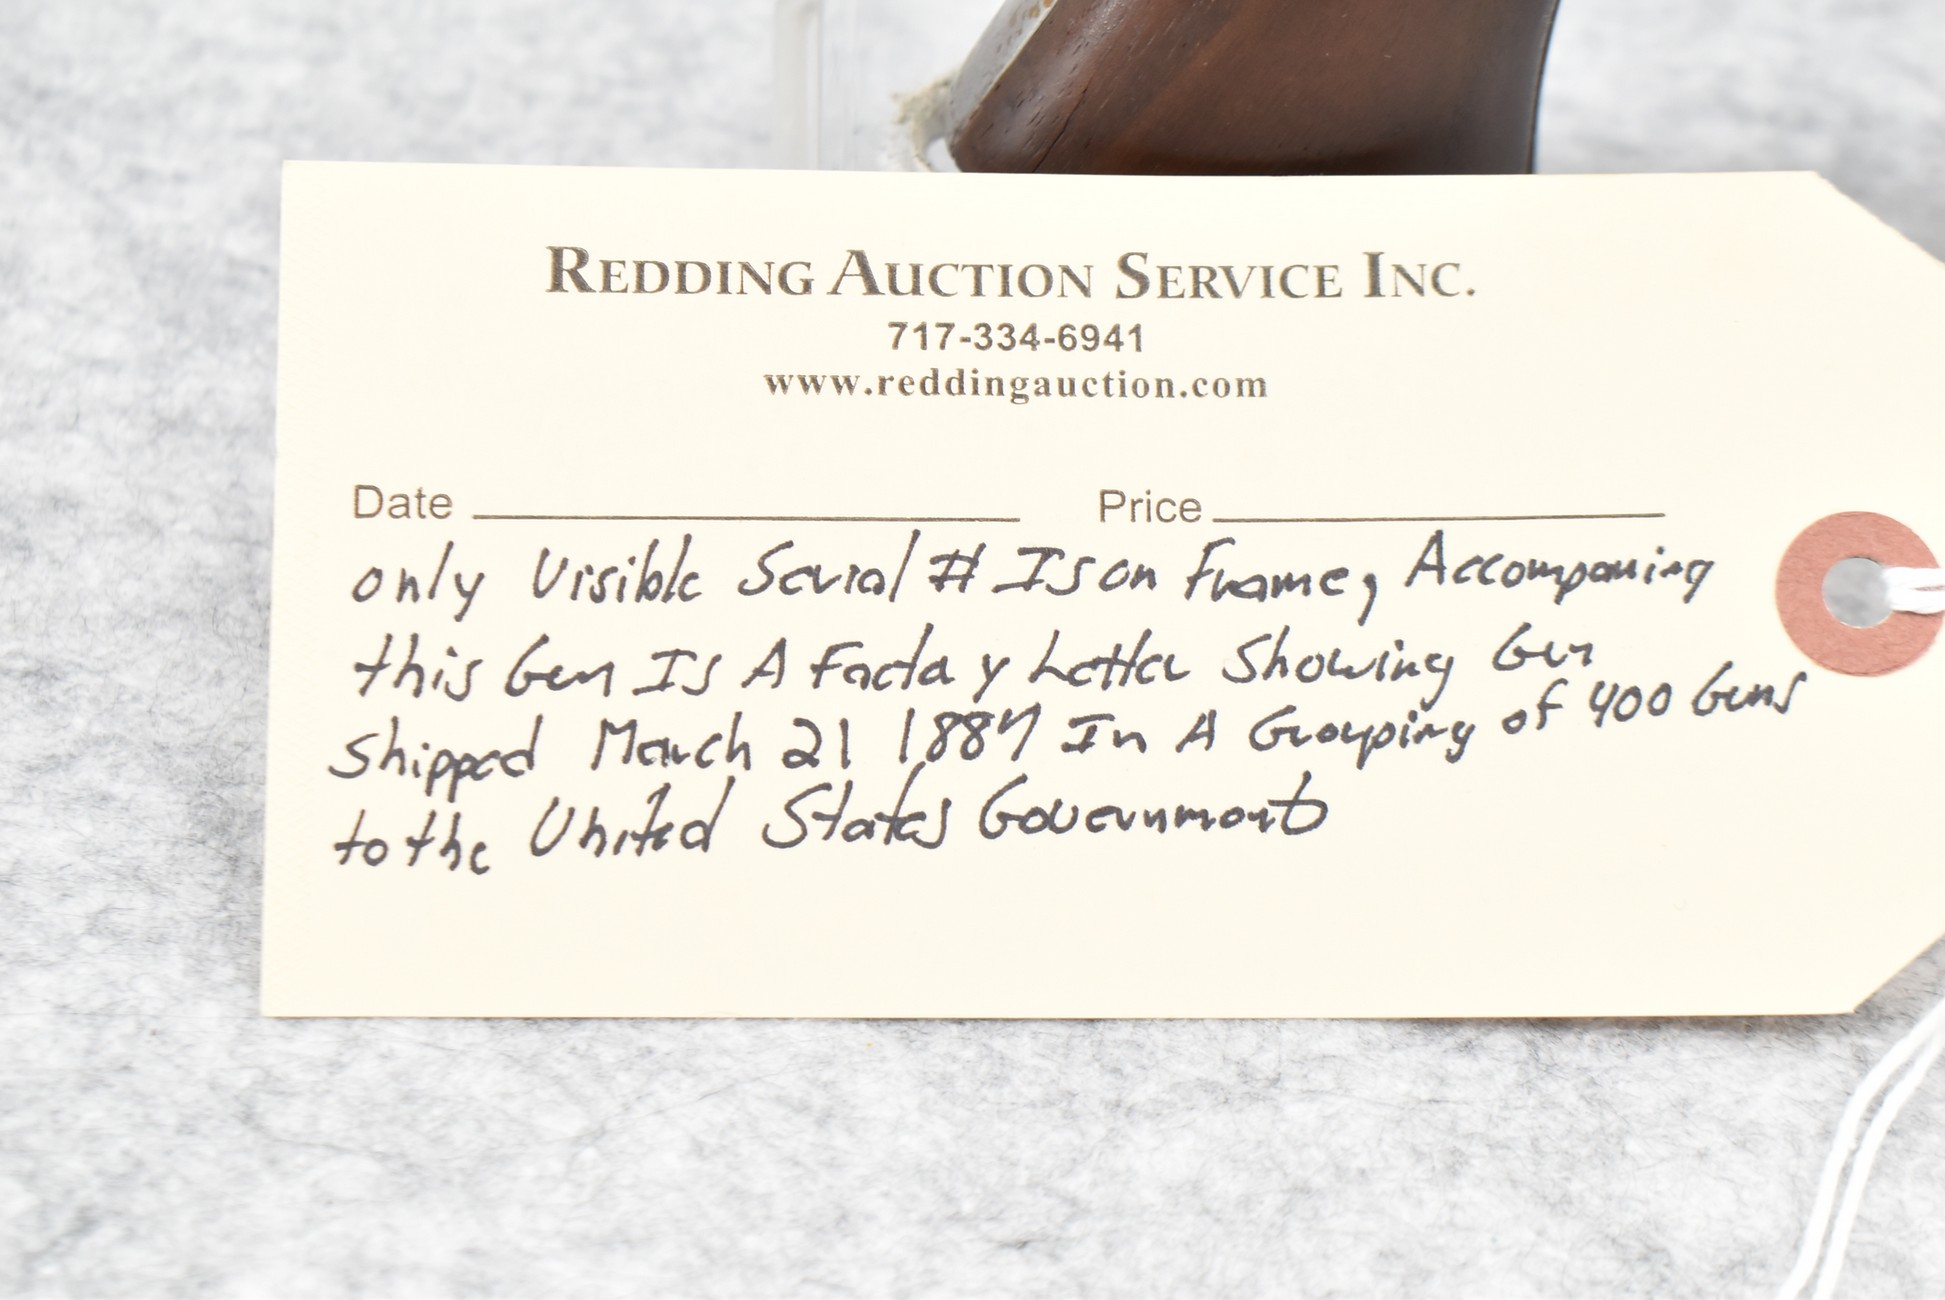 REDDING AUCTION SERVICE INC.
717-334-6941
www.reddingauction.com
Date Price
only Visible Serial # Is on Frame, Accompaning
this Gun Is A Factory Letter Showing Gun
Shipped March 21 1887 In A Grouping of 400 Guns
to the United States Government